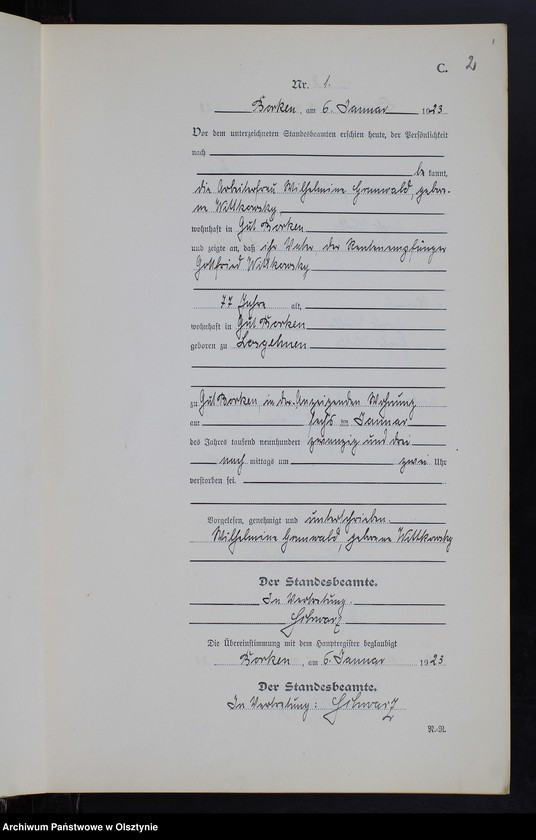 C. 2
Nr. 1.
Borken, am 6. Januar 1923
Vor dem unterzeichneten Standesbeamten erschien heute, der Persönlichkeit
nach
be kannt,
die Arbeiterfrau Wilhelmine Grunwald, gebor-
ne Wittkowsky
wohnhaft in Gut Borken
und zeigte an, daß ihr Vater, der Rentenempfänger
Gottfried Wittkowsky
77 Jahre alt,
wohnhaft in Gut Borken
geboren zu
zu Gut Borken, in der Anzeigenden Wohnung
am sechs ten Januar
des Jahres tausend neunhundert zwanzig und drei
nach mittags um zwei Uhr
verstorben sei.
Vorgelesen, genehmigt und unterschrieben.
Wilhelmine Grunwald, geborene Wittkowsky
Der Standesbeamte.
In Vertretung.
Schwarz
Die Übereinstimmung mit dem Hauptregister beglaubigt
Borken, am 6. Januar 1923
Der Standesbeamte.
In Vertretung: Schwarz
Archiwum Państwowe w Olsztynie